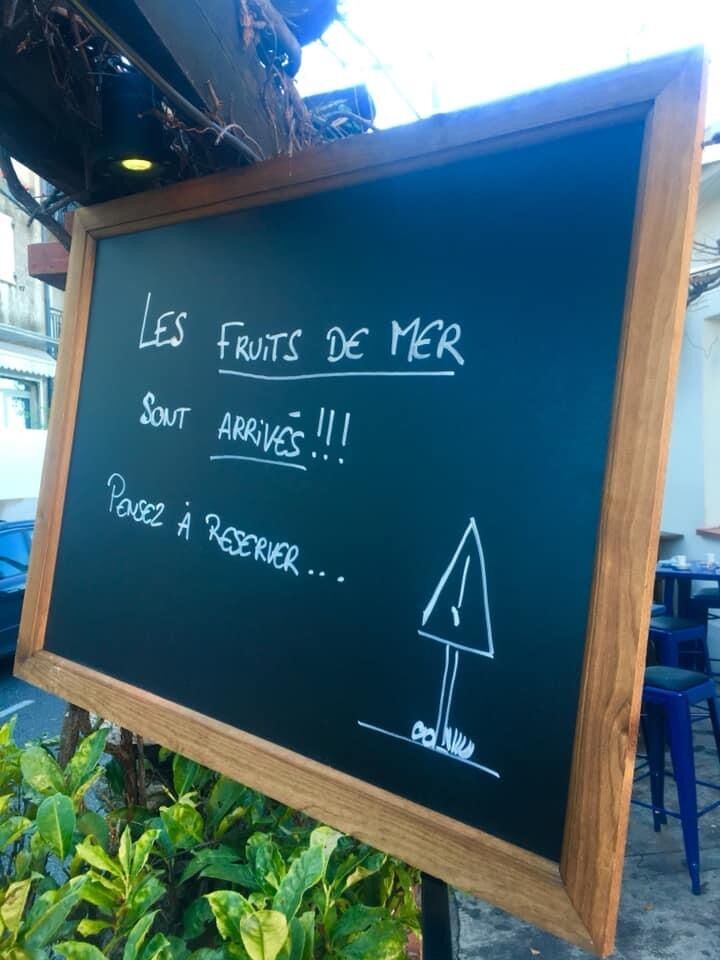 LES FRUITS DE MER
SONT ARRIVÉS !!!
PENSEZ À RESERVER...
!